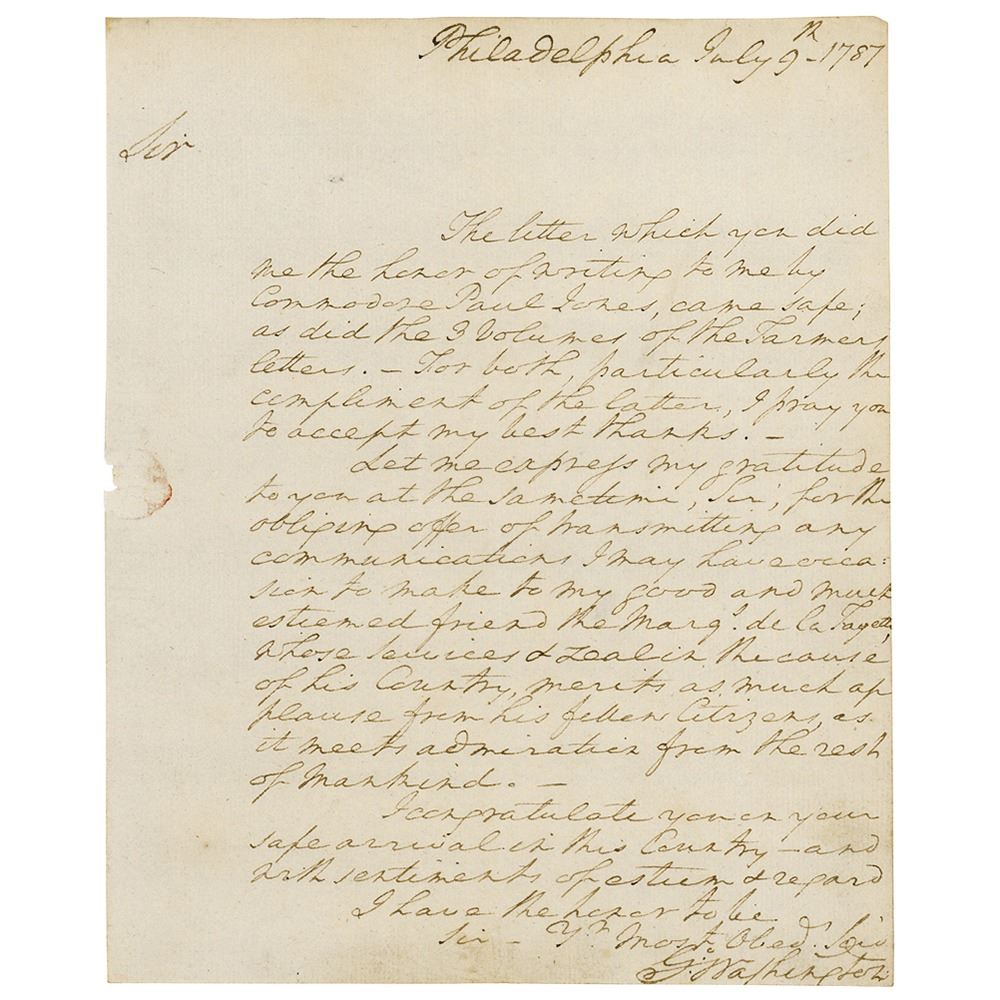 Philadelphia July 9th 1787
Sir
The letter which you did
me the honor of writing to me by
Commodore Paul Jones, came safe;
as did the 3 Volumes of the Farmers
letters. – For both, particularly the
compliment of the latter, I pray you
to accept my best thanks. –
Let me express my gratitude
to you at the sametime, Sir, for the
obliging offer of transmitting any
communications I may have occa:
sion to make to my good and much
esteemed friend the Marqs. de la Fayette,
whose services & zeal in the cause
of his Country, merits as much ap
plause from his fellow Citizens, as
it meets admiration from the rest
of Mankind. –
I congratulate you on your
safe arrival in this Country – and
with sentiments of esteem & regard
I have the honor to be
Sir – Yr. Most Obedt. Serv
Go: Washington